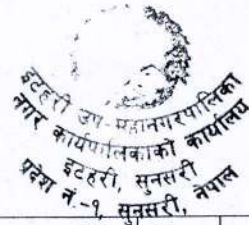 इटहरी उप-महानगरपालिका
नगर कार्यपालिकाको कार्यालय
इटहरी, सुनसरी
प्रदेश नं.-१, सुनसरी, नेपाल